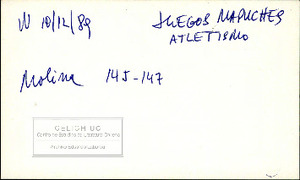 W 10/12/89
JUEGOS MAPUCHES
ATLETISMO
Molina 145-147
CELICH UC
Centro de Estudios de Literatura Chilena